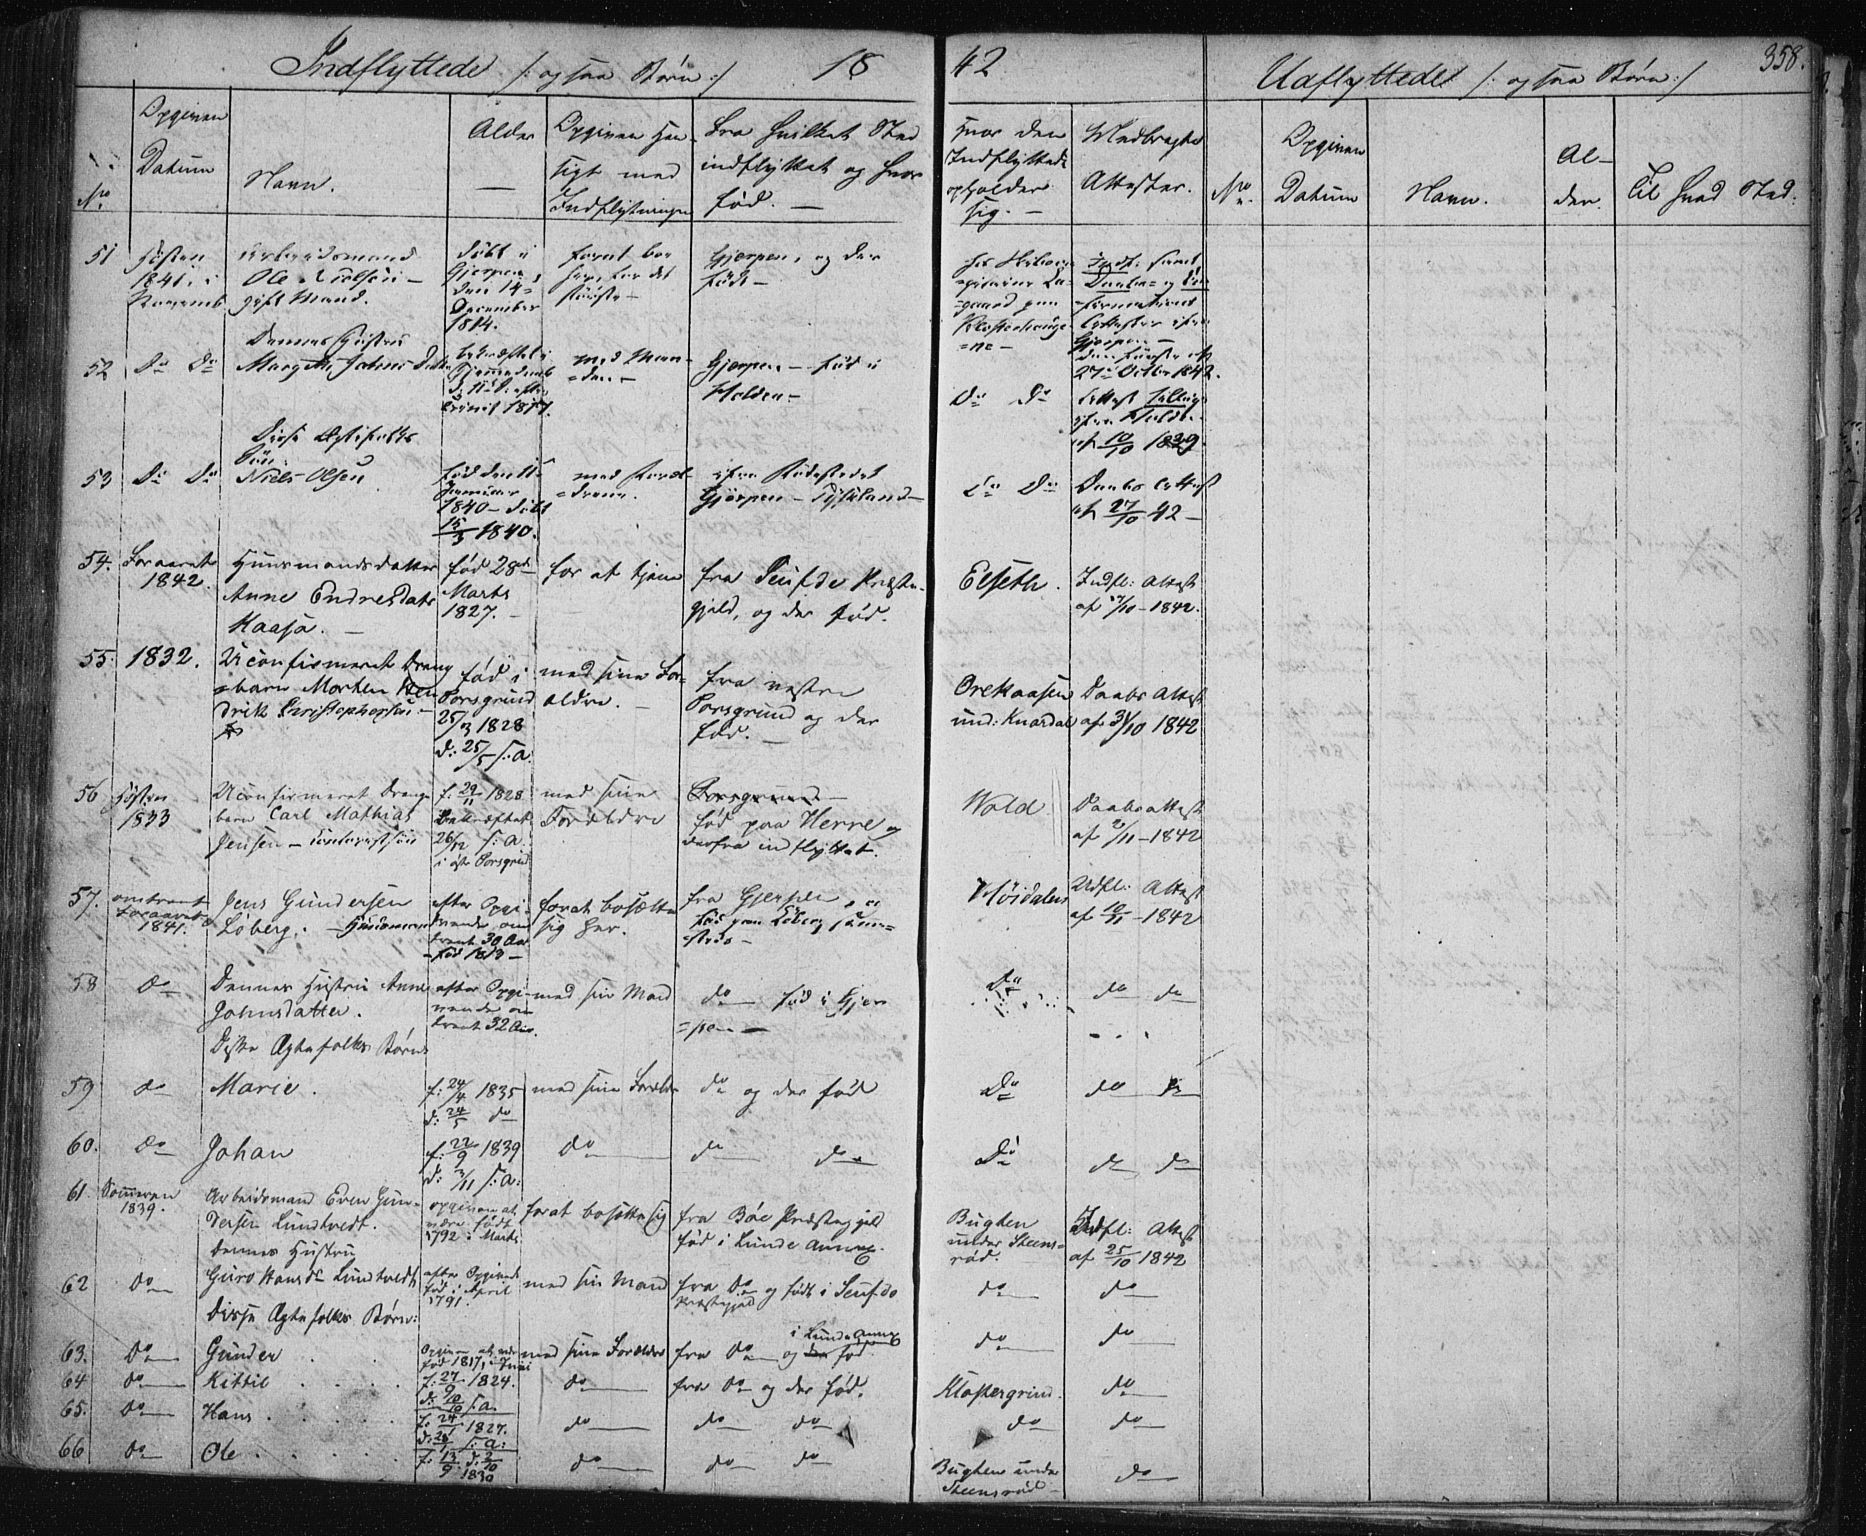 Indflyttede /: ogsaa Börn :/ 18
42 Udflyttede /: ogsaa Börn :/ 358.
No
Opgiven Datum
Navn.
Alder
Opgiven Hensigt med Indflytningen
Fra hvilket Sted indflyttet og hvor fød.
Hvor den Indflyttede opholder sig.
Medbragte Attester.
No
Opgiven Datum
Navn.
Alder.
Til hvad Sted.
51 Høsten 1841, i Novemb
Arbeidsmand Ole Nielsen gift Mand.
døbt i Gjerpen den 14 December 1814.
Gjerpen, og der født
Gjerpen
27 Octbr 1842.
52 Do Do
Dennes Hustru Margethe Johnsd
1817.
med Manden
Gjerpen - fød i Holden
Do Do
af 10/10 1839.
53 Do Do
Disse Ægtefolks Søn
Niels Olsen
født den
Januar 1840 - døbt 15/3 1840.
med Forældrene.
Gjerpen
Do Do
Daabs Attest af 27/10 42
54. Foraaret 1842.
Huusmandsdatter Anne Endresdatr Haasa.
født 28de Marts 1827.
for at tjene
fra Seufde Præstegjeld, og der fød.
Elseth.
Indfl: Attest af 17/10 - 1842.
55. 1832.
Uconfirmeret Drengebarn Morten Hendrik Christophersen
fød i Porsgrund 25/3 1828 d: 25/5 s: a.
med sine Forældre.
fra vestre Porsgrund og der fød.
Orekaasen und: Knardal
Daabs Attest af 31/10 1842
56 Høsten 1833
Uconfirmeret Drengebarn Carl Mathias Jensen
f: 29/11 1828 Bekræftet 26/12 s: a. i øst Porsgrund
med sine Forældre
Porsgrund
fød paa Herre og derfra indflyttet.
Wold
Daabsattest af 2/11 - 1842
57. omtrent Foraaret 1841.
Jens Gundersen Løberg. - Huusmand
efter Opgivende omtrent 30 Aar - fød 1813 -
for at bosætte sig her.
fra Gjerpen, og fød paa Løberg sammesteds
Höidalen
Udfl: Attest af 10/11 - 1842
58 do
Dennes Hustru Anne Johnsdatter.
efter Opgivende omtrent 32 Aar.
med sin Mand
do fød i Gjerpen
Do
do do
Disse Ægtefolks Børn:
59 do
Marie.
f: 24/4 1835 d: 24/5 do
med sine Forældre
do og der fød
Do
do do
60. do
Johan
f: 22/9 1839 d: 3/11 s: a:
do
do do
Do
do do
61. Sommeren 1839.
Arbeidsmand Even Gundersen Lundtvedt.
opgiven at være født 1792 i Marts
for at bosætte sig
fra Böe Præstegjeld fød i Lunde Annex.
Bugten under Steensrød.
Indfl: Attest af 25/10 1842
62 do
Dennes Hustru Guro Hansdr Lundtvedt
efter Opgivende fød i April 1791.
med sin Mand
fra do Præstegjeld og født i Seufde
do
do
Disse Ægtefolks Börn:
63. do
Gunder
fød 1817, i Juni
med sine Forældre
fra do og der fød i Lunde Annex
do
do
64 do
Kittil
f: 27/9 1824. d: 10/10 s: a.
do
fra do og der fød.
Klostergrund.
do
65. do
Hans.
f: 24/1 1827. d: 28/1 s: a:
do
do do
do
do
66 do
Ole
f: 13/9 d: 3/10 1830
do
do do
Bugten under Steensrød
do